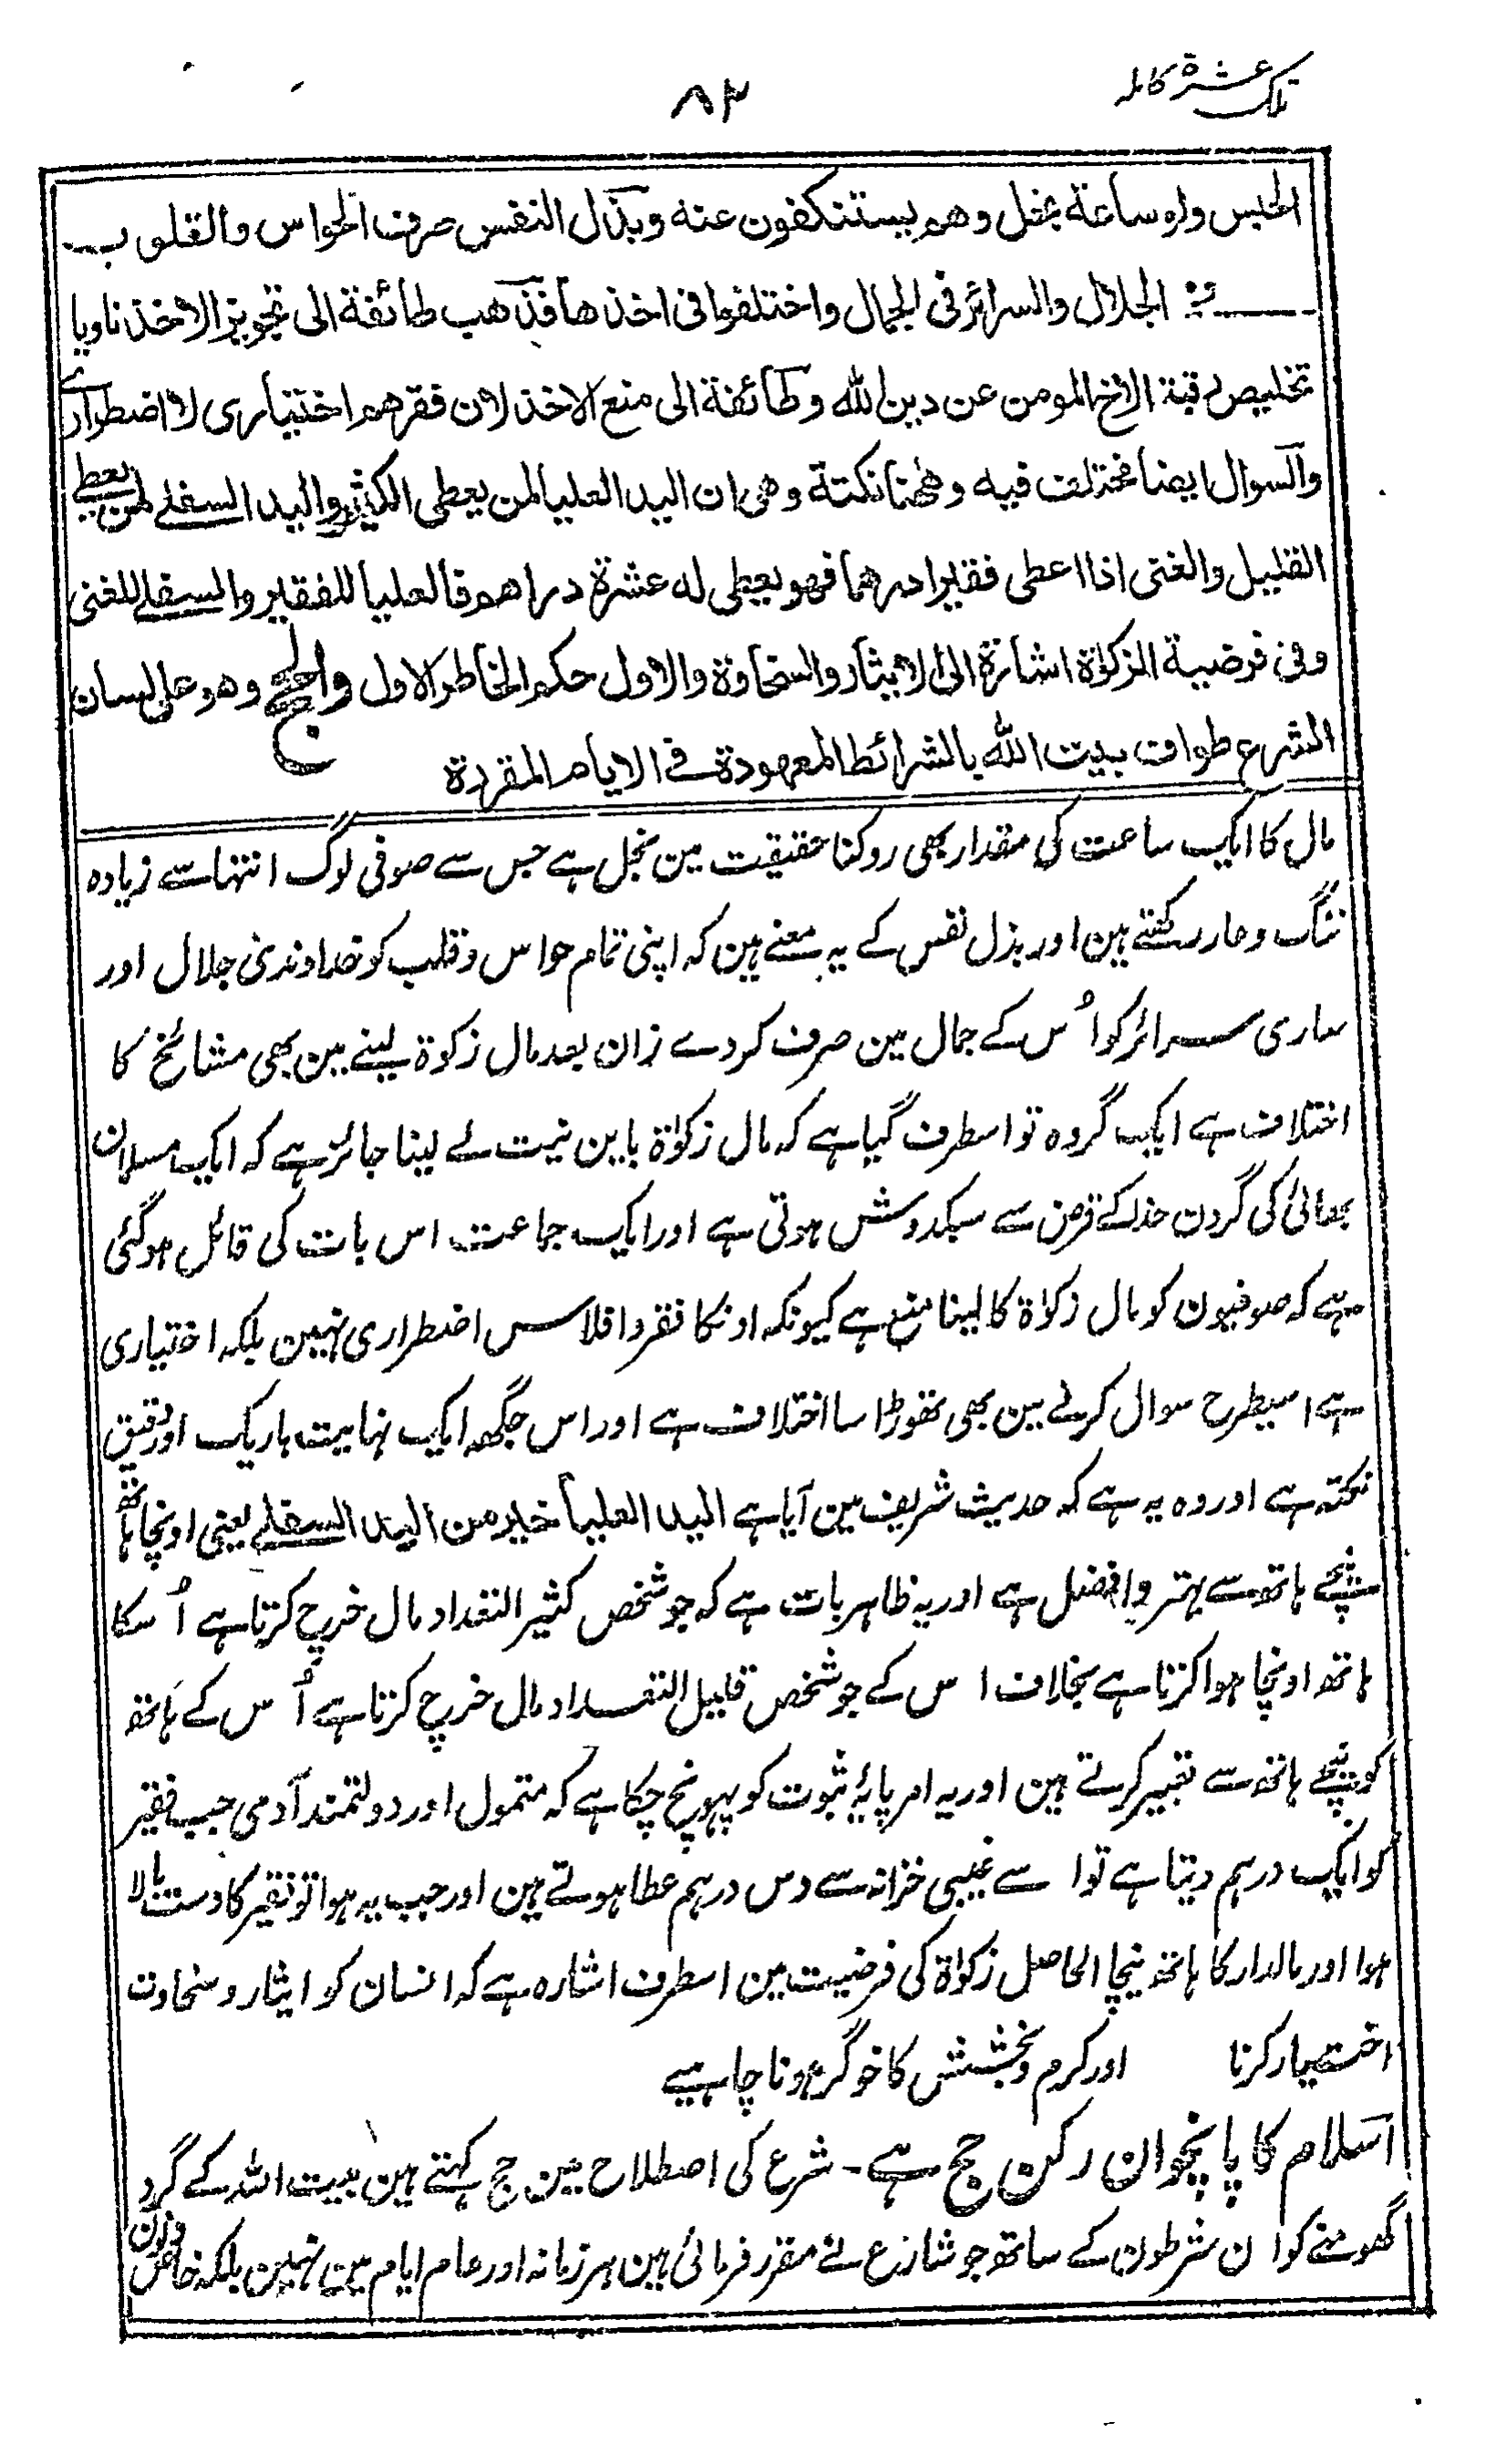 تلک عشرۃ کاملہ
۸۲
الحبس ولو ساعة بخل وهم يستنكفون عنه وبذل النفس صرف الحواس والقلوب
فى الجلال والسرائر فى الجمال واختلفوا فى اخذها فذهب طائفة الى تجويز الاخذ ناويا
تخليص رقبة الاخ المومن عن دين الله وطائفة الى منع الاخذ لان فقرهم اختيارى لا اضطرارے
والسوال ايضا مختلف فيه وههنا نكتة وهى ان اليد العليا لمن يعطى الكثير واليد السفلے لمن يعطے
القليل والغنى اذا اعطى فقيرا درهما فهو يعطى له عشرة دراهم فالعليا للفقير والسفلے للغنى
وفى فرضية الزكوٰة اشارة الى الايثار والسخاوة والاول حكم الخاطر الاول والحج وهو على لسان
الشرع طواف بيت الله بالشرائط المعهودة فے الايام المقررة
مال کا ایک ساعت کی مقدار بھی روکنا حقیقت مین بخل ہے جس سے صوفی لوگ انتہا سے زیادہ
ننگ و عار رکھتے ہین اور بذل نفس کے یہ معنے ہین کہ اپنی تمام حواس و قلب کو خداوندی جلال اور
ساری سرائر کو اُس کے جمال مین صرف کردے زان بعد مال زکوۃ لینے مین بھی مشائخ کا
اختلاف ہے ایک گروہ تو اسطرف گیا ہے کہ مال زکوٰۃ باین نیت لے لینا جائز ہے کہ ایک مسلمان
بھائی کی گردن خدا کے قرض سے سبکدوش ہوتی ہے اور ایک جماعت اس بات کی قائل ہوگئی
ہے کہ صوفیون کو مال زکوٰۃ کا لینا منع ہے کیونکہ اونکا فقر و افلاس اضطراری نہین بلکہ اختیاری
ہے اسیطرح سوال کرنے مین بھی تھوڑا سا اختلاف ہے اور اس جگھہ ایک نہایت باریک اور دقیق
نکتہ ہے اور وہ یہ ہے کہ حدیث شریف مین آیا ہے اليد العليا خير من اليد السفلے یعنی اونچا ہاتھ
نیچے ہاتھ سے بہتر و افضل ہے اور یہ ظاہر بات ہے کہ جو شخص کثیر التعداد مال خرچ کرتا ہے اُسکا
ہاتھ اونچا ہوا کرتا ہے بخلاف اس کے جو شخص قلیل التعداد مال خرچ کرتا ہے اُس کے ہاتھ
کو نیچے ہاتھ سے تعبیر کرتے ہین اور یہ امر پایۂ ثبوت کو پہونچ چکا ہے کہ متمول اور دولتمند آدمی جب فقیر
کو ایک درہم دیتا ہے تو اسے غیبی خزانہ سے دس درہم عطا ہوتے ہین اور جب یہ ہوا تو فقیر کا دست بالا
ہوا اور مالدار کا ہاتھ نیچا الحاصل زکوٰۃ کی فرضیت مین اسطرف اشارہ ہے کہ انسان کو ایثار و سخاوت
اختیار کرنا اور کرم و بخشش کا خوگر ہونا چاہیے
اسلام کا پانچوان رکن حج ہے۔ شرع کی اصطلاح مین حج کہتے ہین بیت اللہ کے گرد
گھومنے کو ان شرطون کے ساتھ جو شارع نے مقرر فرمائی ہین ہر زمانہ اور عام ایام مین نہین بلکہ خاص دنون